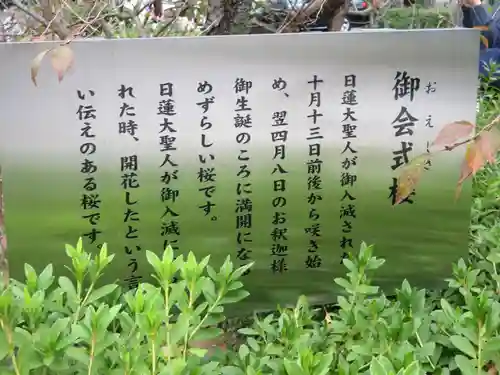 おえしき
御会式桜
日蓮大聖人が御入滅され
十月十三日前後から咲き始
め、翌四月八日のお釈迦様
御生誕のころに満開にな
めずらしい桜です。
日蓮大聖人が御入滅に
れた時、開花したという言
い伝えのある桜です